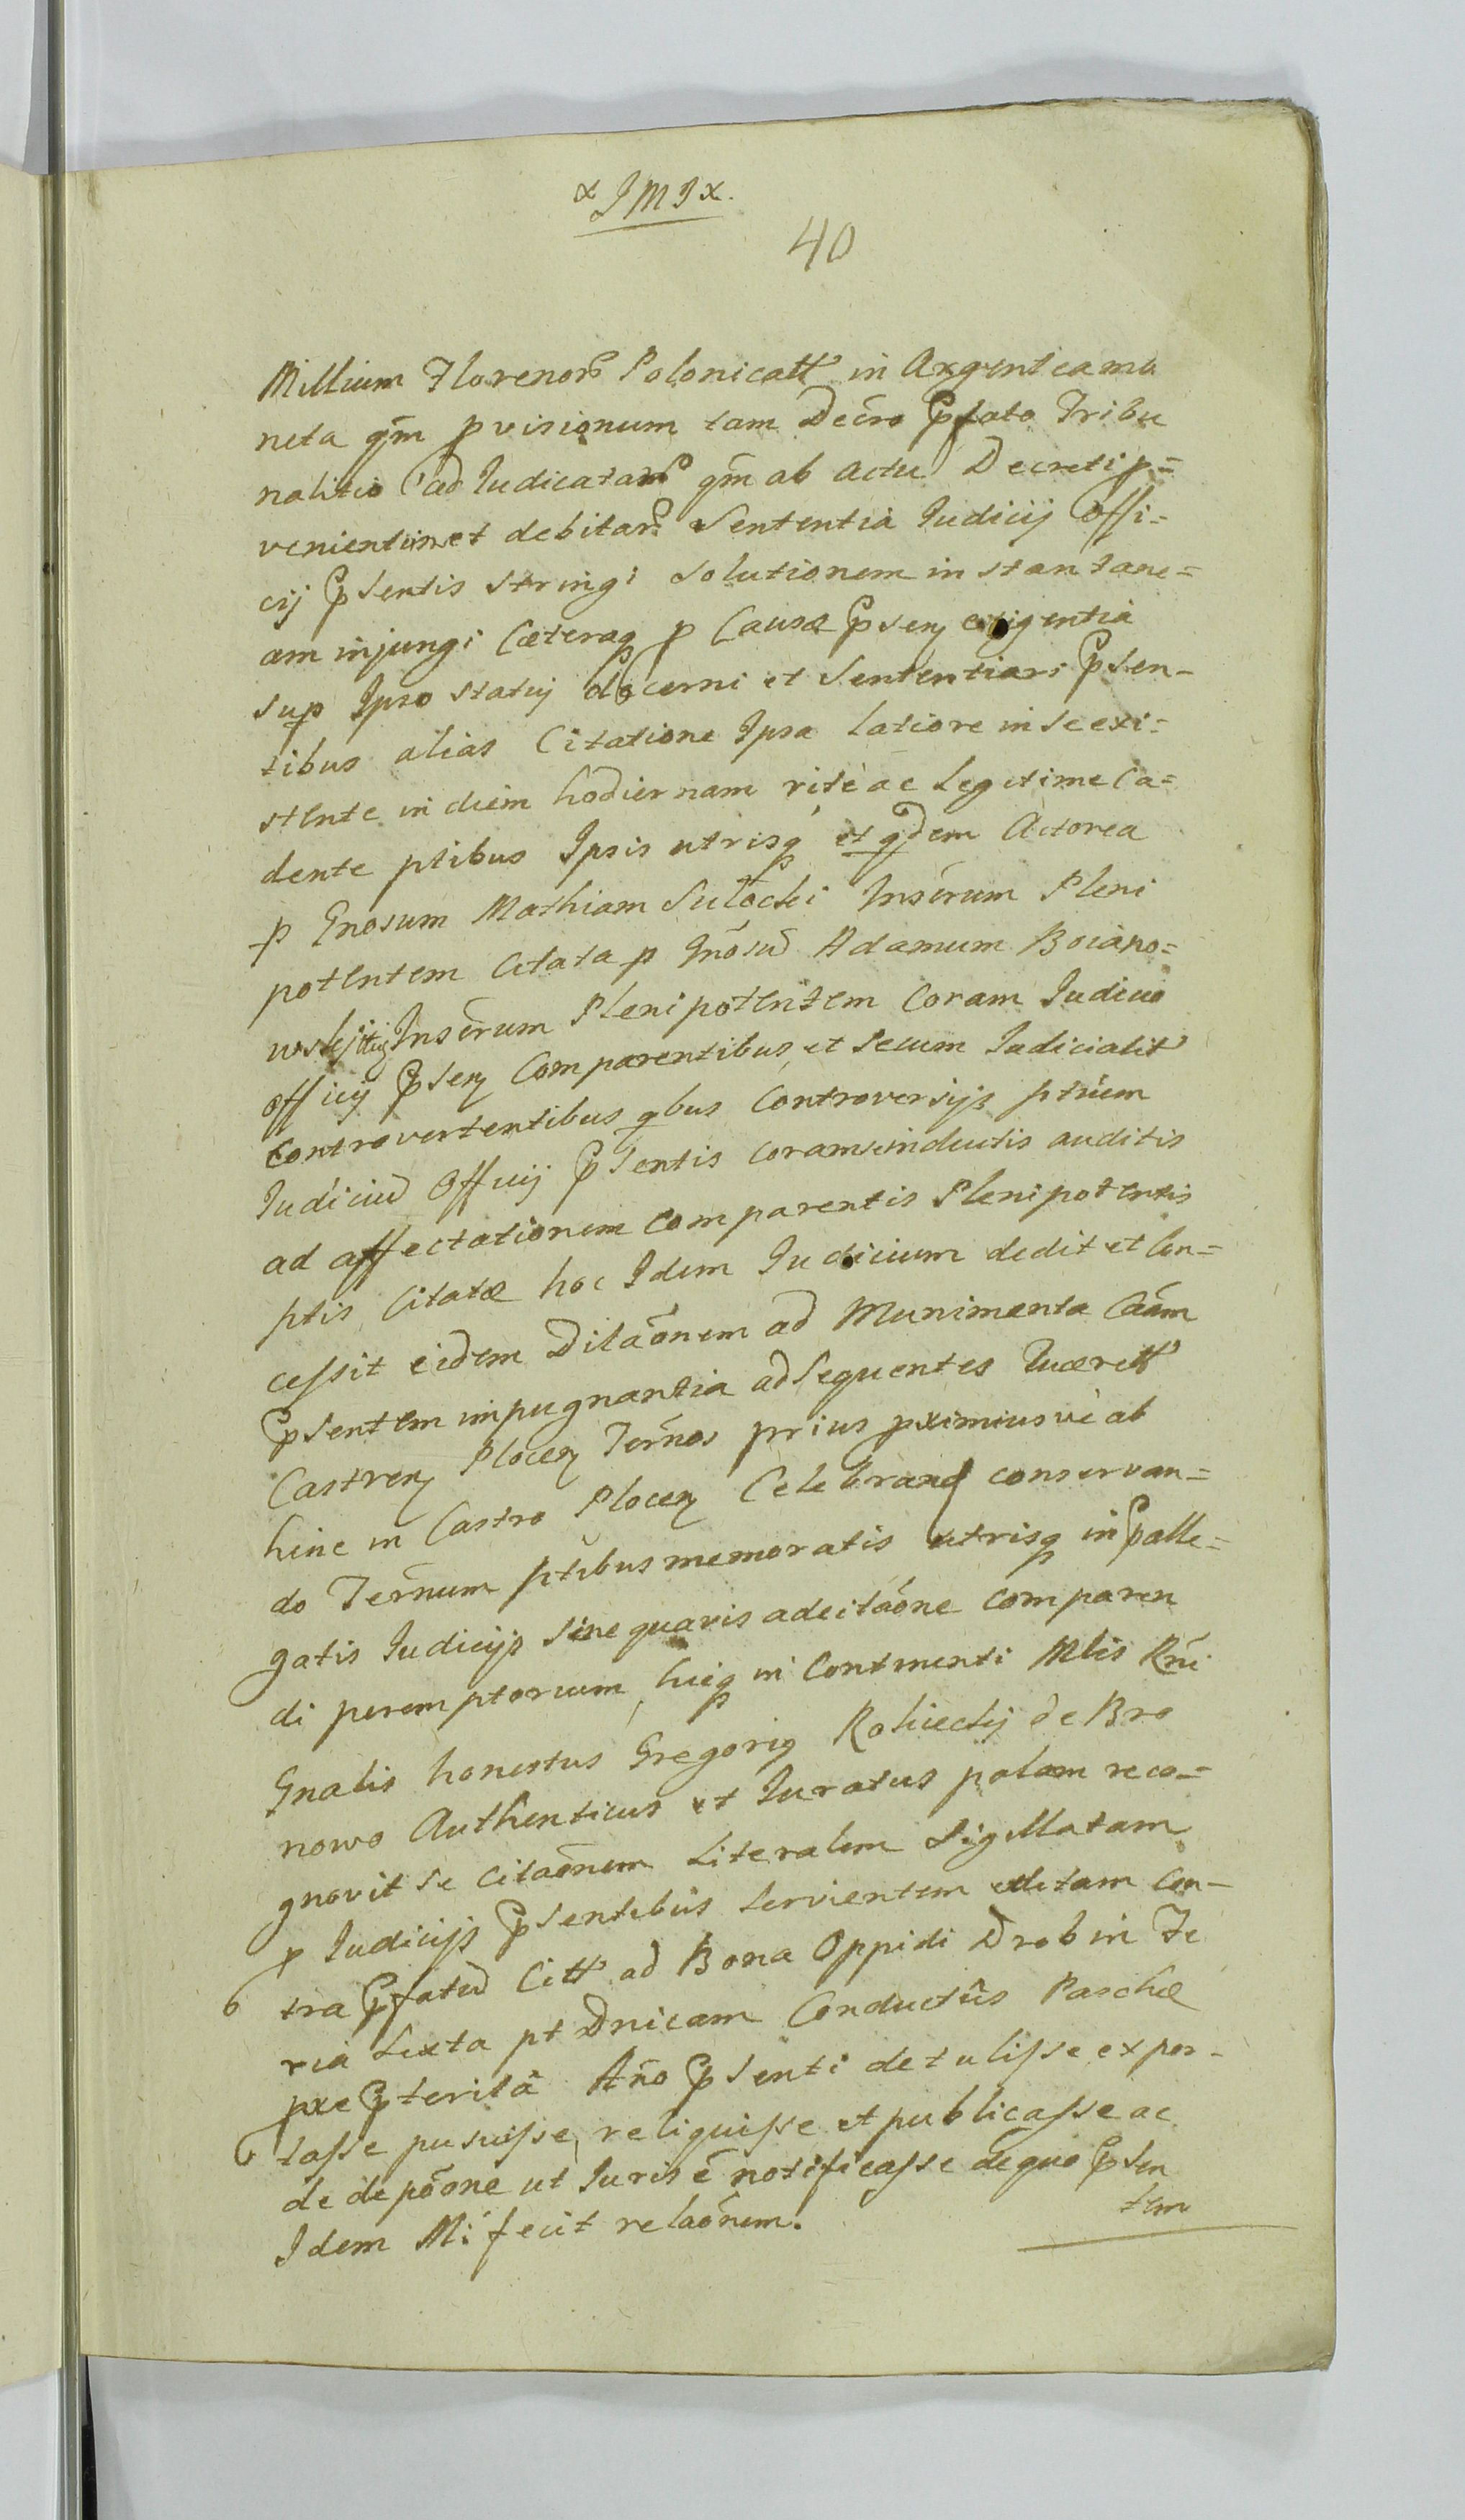 x JMJ x.
40
Millium Florenor Polonicatt in Argentea mu
neta qm pvisionum tam Decro Pfato Tribu
nalitio adJudicatar qm ab actu Decreti p=
venientium et debitar Sententia Judicij Offi=
cij Psentis stringi solutionem instantane=
am injungi Cæteraq p Causæ Psen exigentia
sup Ipso statuj decerni et Sententiari Psen-
tibus alias Citatione Ipsa latiore in se exi=
stente in diem hodiernam rite ac legitime Ca=
dente ptibus Ipsis utrisq et qdem Actorea
p Gnosum Mathiam Sulocki Inserum Pleni
potentem Citata p Gnosu Adamum Boiano=
wskj Inserum Plenipotentem Coram Judicio
Officij Psen Comparentibus et secum Judicialit
Controvertentibus qbus Controversijs ptium
Judiciu Officij Psentis coram se inductis auditis
ad affectationem comparentis Plenipotentis
ptis Citatæ hoc Idem Judicium dedit et Con=
cessit eidem Dilaonem ad Munimenta Caam
Psentem impugnantia ad Sequentes Quærett
Castren Plocen Ternos prius pximiusve ab
hinc in Castro Plocen Celebrand conservan=
do Ternum ptibus memoratis utrisq in Palle=
gatis Judicijs Sine quavis adcitaone comparen
di peremptorium, huiq in Continenti Mlis Rni
Gnalis honestus Gregoriq Rokiecky de Bro
nowo Authenticus et Juratus palam reco=
gnovit se Citaonem Literalem Sigillatam
p Judicijs Psentibus servientem editam Con-
tra Pfatu Citt ad Bona Oppidi Drobin Fe
ria Sexta pt Dnicam Conductus Paschæ
præPterita Ano Psenti detulisse expor-
tasse posuisse, reliquisse et publicasse ac
de depoone ut Juris e notificasse de quo Psen
tem
Idem Mi fecit relaonem.